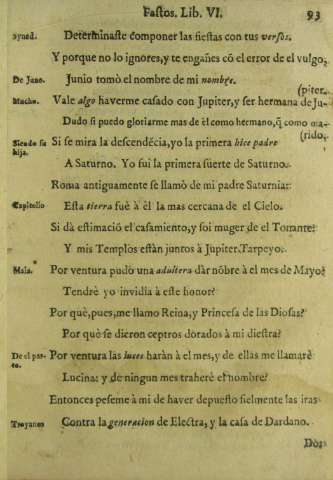 Fastos. Lib. VI. 93
syned. Determinaste componer las fiestas con tus versos.
Y porque no lo ignores, y te engañes cõ el error de el vulgo,
De Jano. Junio tomò el nombre de mi nombre. (piter.
Mucho. Vale algo haverme casado con Jupiter, y ser hermana de Ju-
Dudo si puedo gloriarme mas de èl como hermano, q̃ como ma-
(rido,
Siendo su Si se mira la descendẽcia, yo la primera hice padre
hija.
A Saturno. Yo fui la primera suerte de Saturno.
Roma antiguamente se llamò de mi padre Saturnia:
Capitolio Esta tierra fuè à èl la mas cercana de el Cielo.
Si dà estimació el casamiento, y soi muger de el Tonante:
Y mis Templos estàn juntos à Jupiter Tarpeyo.
Maia. Por ventura pudo una adultera dàr nõbre à el mes de Mayo?
Tendrè yo invidia à este honor?
Por què, pues, me llamo Reina, y Princesa de las Diosas?
Por què se dieron ceptros dorados à mi diestra?
De el par- Por ventura las luces haràn à el mes, y de ellas me llamarè
to.
Lucina: y de ningun mes traherè el nombre?
Entonces peseme à mi de haver depuesto fielmente las iras
Troyanos Contra la generacion de Electra, y la casa de Dardano.
Dos